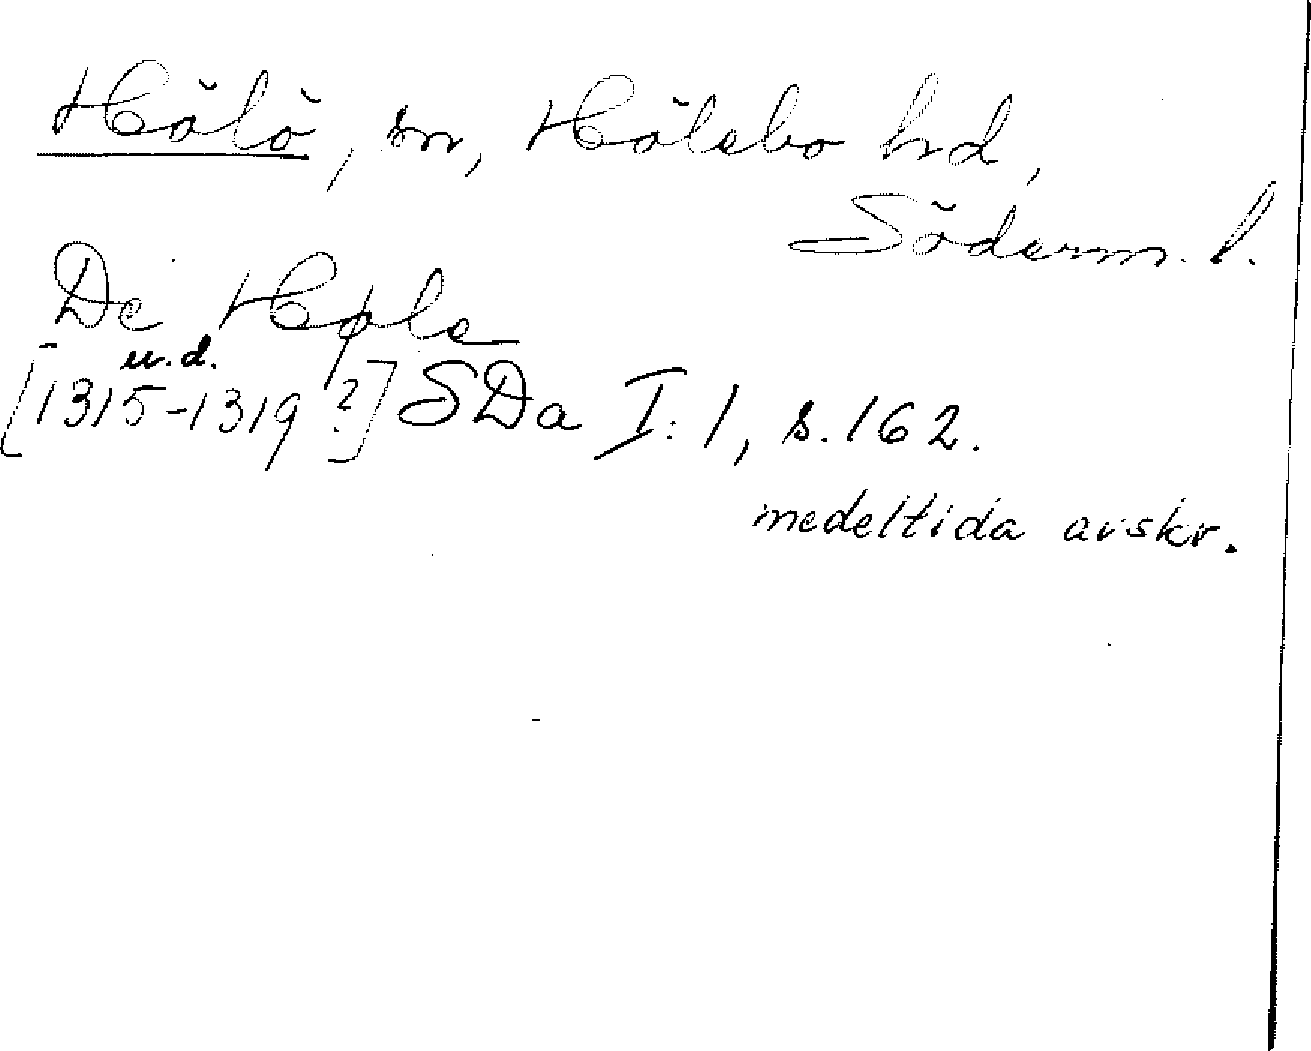 Hölö, sn, Hölebo hrd,
Söderm. l.
De Høle
u.d.
[1315-1319?] SDa I:1, s.162.
medeltida avskr.